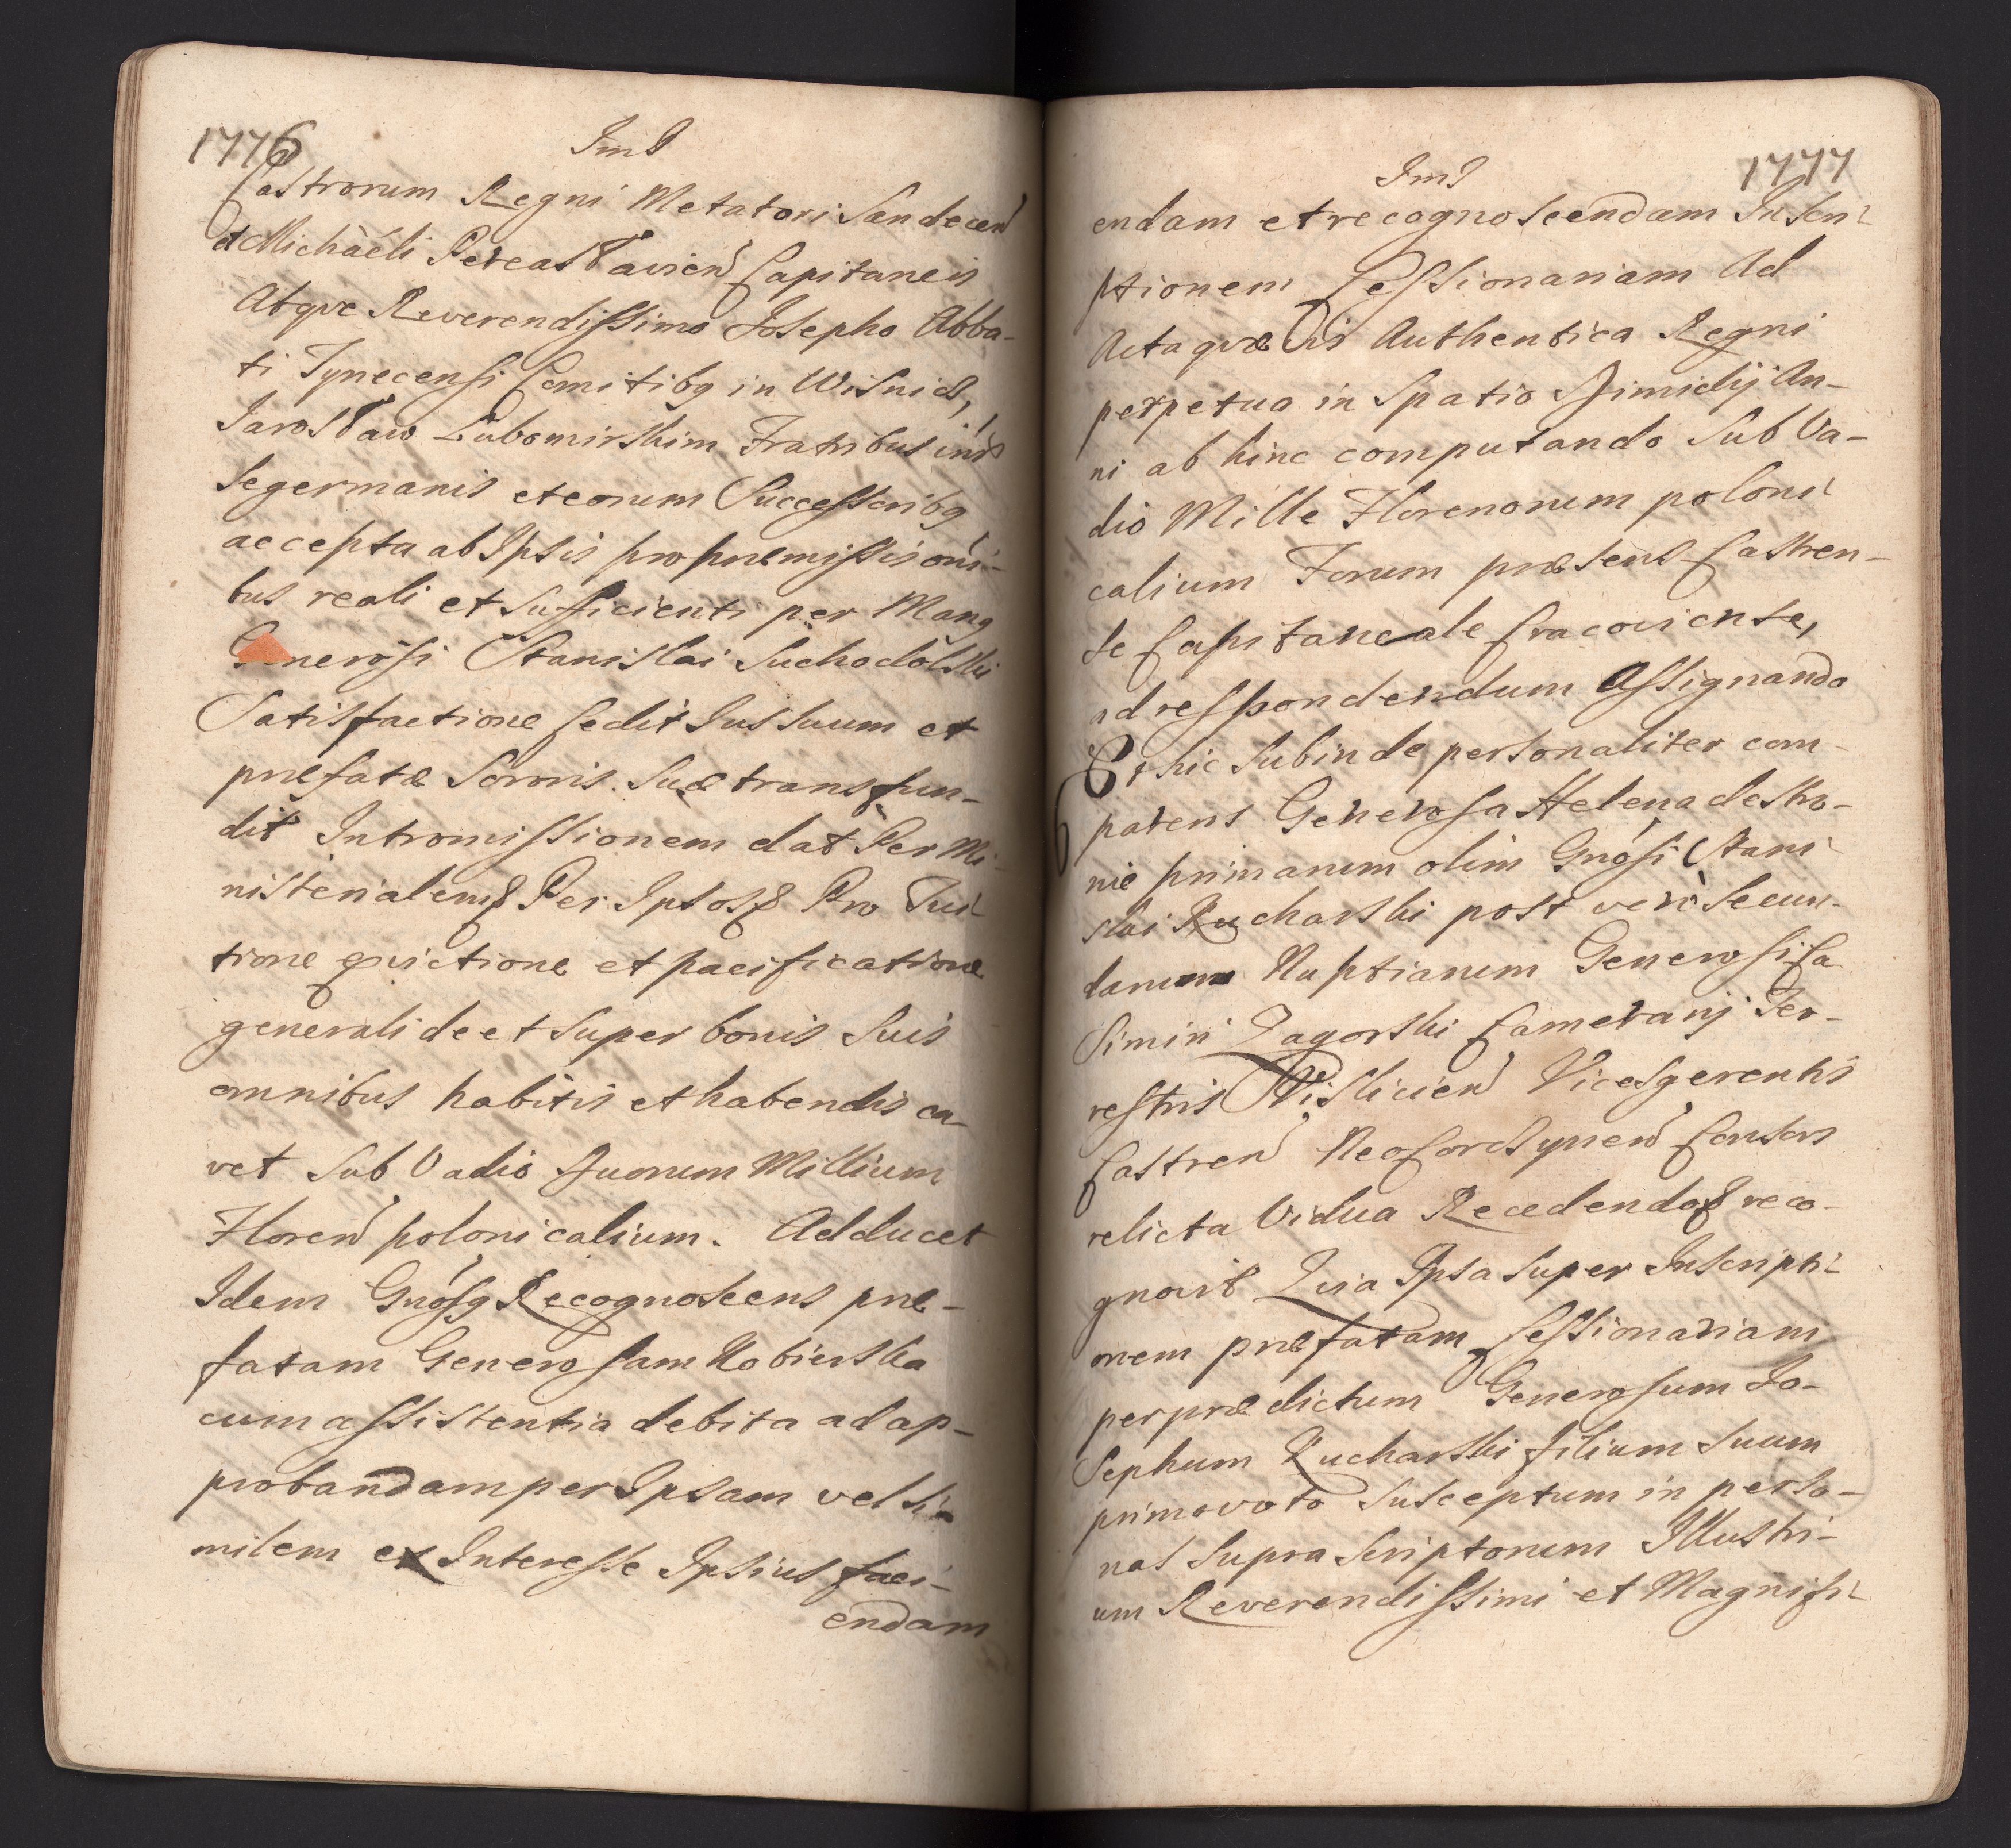 1776
Ims
Castrorum Regni Metatori Sandecen
et Michaeli Pereasłavien Capitaneis
Atqve Reverendissimo Josepho Abba-
ti Tynecensi Comitibq in Wisnicz,
Jarosław Lubomirskim Fratribus in
se germanis et eorum Successoribq
accepta ab Ipsis pro præmissis omi-
bus reali et Sufficienti per Manq
Generosi Stanislai Suchodolski
Satisfactione Cedit Jus Suum et
præfatæ Sororis Suæ transfun-
dit Intromissionem dat Per Mi-
nisterialem& Per Ipsos& Pro Tui-
tione evictione et pacificatione
generali de et Super bonis Suis
omnibus habitis et habendis ca-
vet Sub Vadio Duorum Millium
Floren polonicalium. Adducet
Idem Gnosq Recognoscens præ-
fatam Generosam Kobierska
cum assistentia debita ad ap-
probandam per Ipsam vel Si-
milem ex Interesse Ipsius faci-
endam
1777
Ims
endam et recognoscendam Inscri-
ptionem Cessionariam Ad
Acta qvæ vis Authentica Regni
perpetua in Spatio Dimidij An-
ni ab hinc computando Sub Va-
dio Mille Florenorum poloni-
calium Forum præsens Castren-
se Capitaneale Cracoviense,
ad respondendum Assignando
Et hic Subinde personaliter com-
parens Generosa Helena de Stro-
nie primarum olim Gnosi Stani-
slai Kucharski post vero Secun-
darum Nuptiarum Generosi Ca
Simiri Zagorski Camerarij Ter-
restris Vislicien Vicesgerentis
Castren Neo Cordsynen Consors
relicta Vidua Recedendo& reco-
gnovit Quia Ipsa Super Inscripti-
onem præfatam Cessionariam
per prædictum Generosum Jo-
Sephum Kucharski filium Suum
primovoto Susceptum in perso-
nas Supra Scriptorum Illustri-
um Reverendissimi et Magnifi-